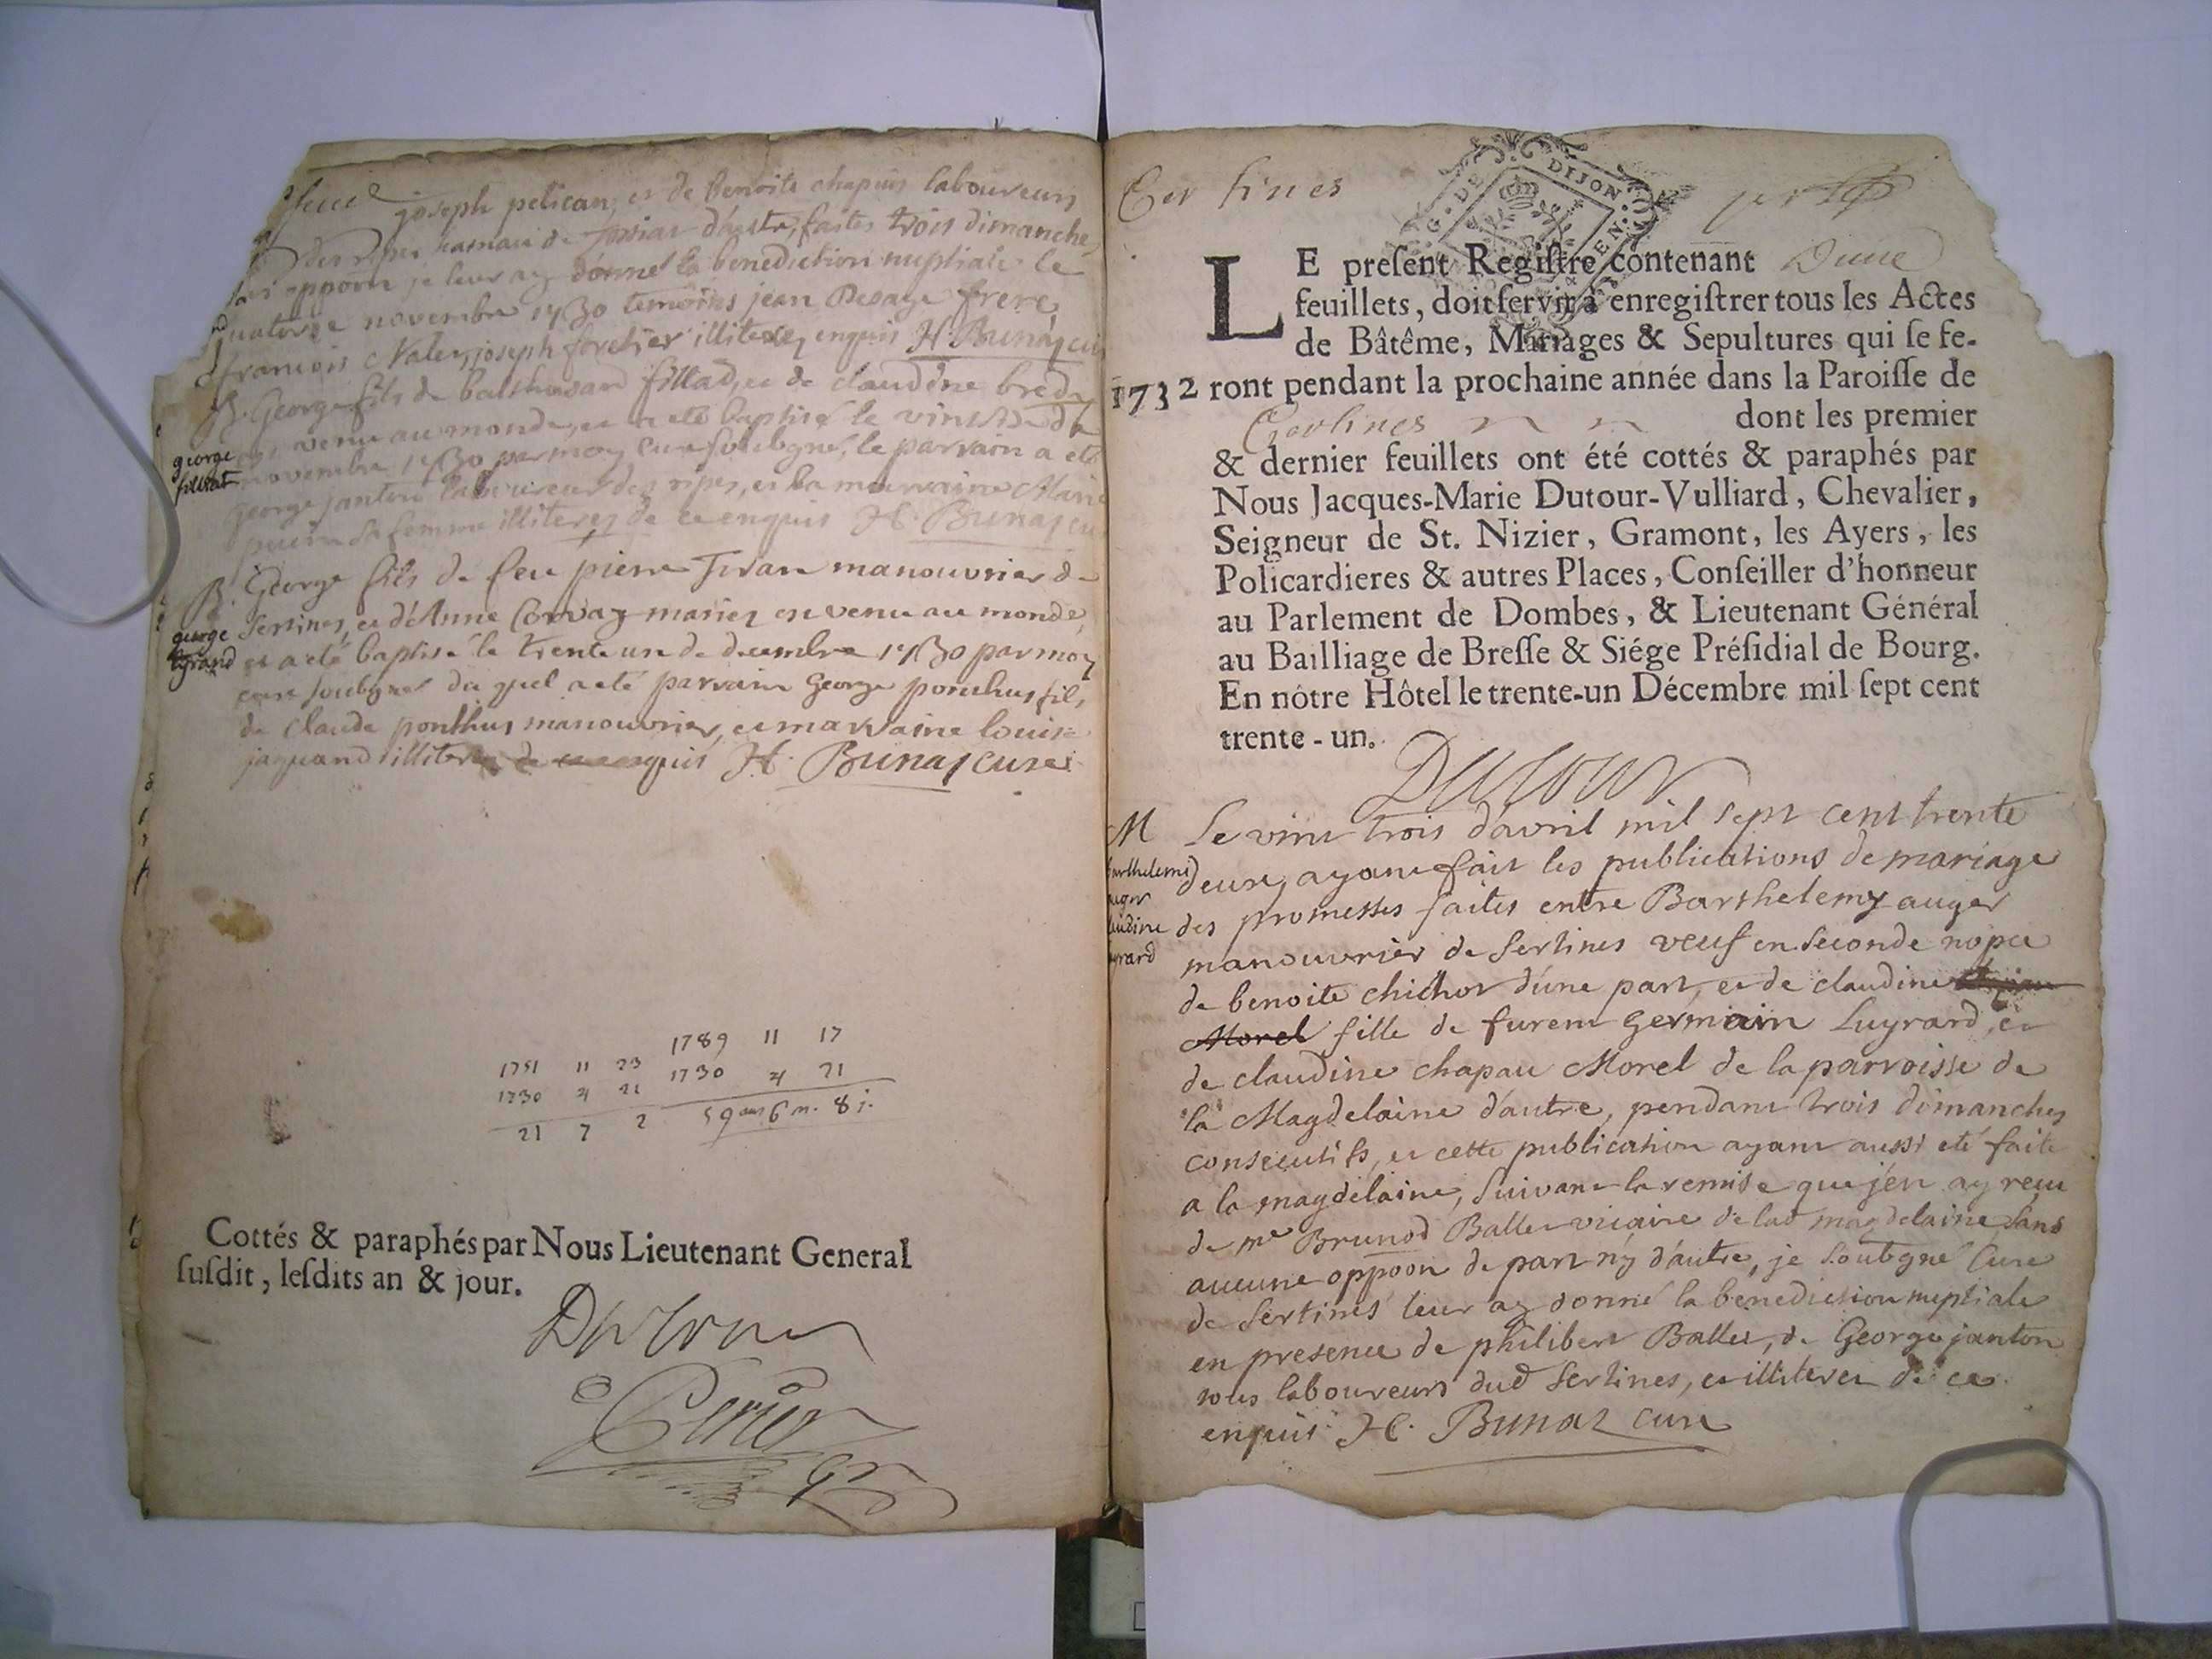 joseph pelican, et de benoite chapuis laboureurs
hameau de d'autre, faites trois dimanche
oppoôn je leur ay donné la benediction nuptiale le
quatorze novembre 1730 temoins jean Desage frere
francois joseph forestier illiterez enquis H. Bunaz cu
B. George fils de balthasard fillad, et de claudine
venu au monde, et a eté baptisé le
george
novembre 1730 par moy curé soubsgné, le parvain a eté
fillat
george janton laboureur des ripes, et la marvaine Marie
sa femme illiterez de ce enquis H. Bunaz cu
B. George fils de feu pierre manouvrier de
Sertines, et d'Anne Convaz mariez est venu au monde,
george
et a eté baptisé le trente un de decembre 1730 par moy
curé soubgné du quel a eté parvain George ponthus fils
de claude ponthus manouvrier, et marvaine louise
jaquand illiterez de ce enquis H. Bunaz curé
1789 11 17
1751 11 23 1730 4 21
1730 4 21
21 7 2 59 ans 6 m. 8 j.
Cottés & paraphés par Nous Lieutenant General
susdit, lesdits an & jour.
Dutour
Certines
G. DE DIJON
LE present Registre contenant Deux
feuillets, doit servir à enregistrer tous les Actes
de Bâtême, Mariages & Sepultures qui se fe-
1732 ront pendant la prochaine année dans la Paroisse de
Certines dont les premier
& dernier feuillets ont été cottés & paraphés par
Nous Jacques-Marie Dutour-Vulliard, Chevalier,
Seigneur de St. Nizier, Gramont, les Ayers, les
Policardieres & autres Places, Conseiller d'honneur
au Parlement de Dombes, & Lieutenant Général
au Bailliage de Bresse & Siége Présidial de Bourg.
En nôtre Hôtel le trente-un Décembre mil sept cent
trente-un.
Dutour
M Le vint trois d'avril mil sept cent trente
barthelemi
deux, ayant fait les publications de mariage
auger
des promesses faites entre Barthelemy auger
claudine
manouvrier de Sertines veuf en seconde nopce
de benoite chichot d'une part, et de claudine
Morel fille de furent Germain Luyrard, et
de claudine chapau Morel de la parroisse de
la Magdelaine d'autre, pendant trois dimanches
consecutifs, et cette publication ayant aussi eté faite
a la magdelaine, suivant la remise que j'en ay reçu
de me Brunod Ballet vicaire de lad magdelaine sans
aucune oppoôn de part n'y d'autre, je soubgné Curé
de Sertines leur ay donné la benediction nuptiale
en presence de philibert Ballet, de George janton
tous laboureurs dud Sertines, et illiterez de ce
enquis H. Bunaz curé